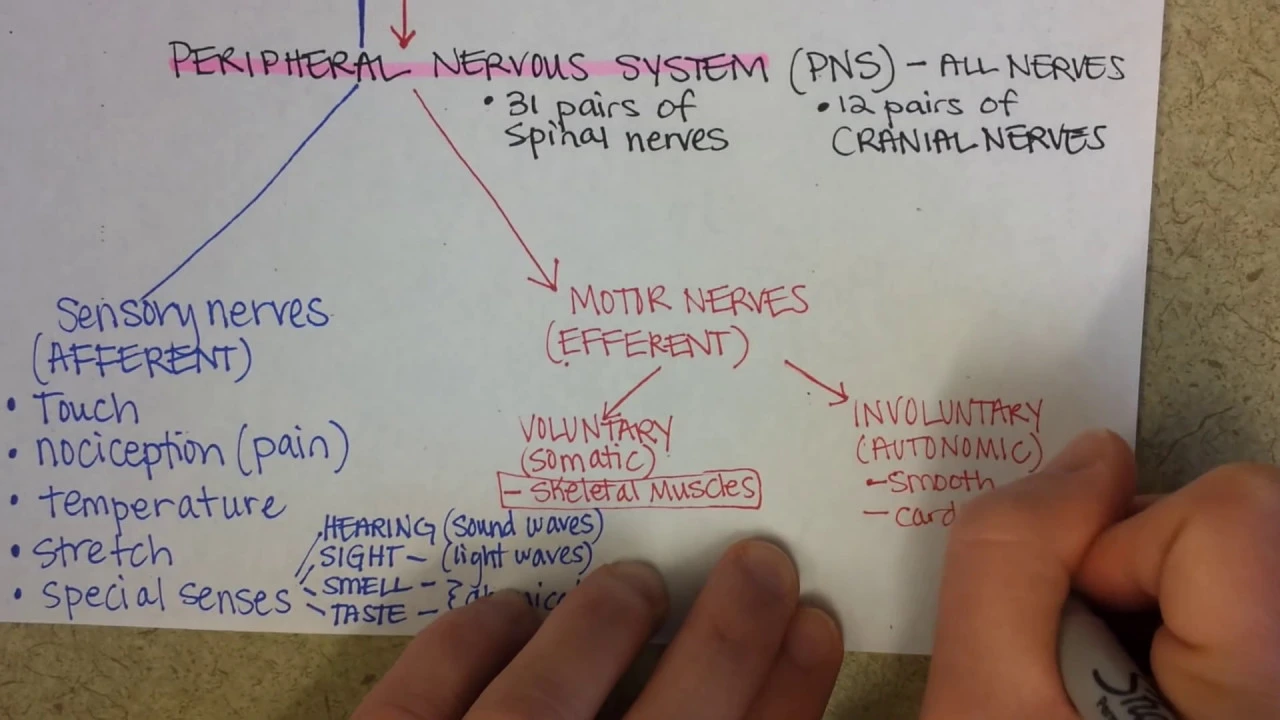 PERIPHERAL NERVOUS SYSTEM (PNS) - ALL NERVES
• 31 pairs of
spinal nerves
• 12 pairs of
CRANIAL NERVES
Sensory nerves
(AFFERENT)
• Touch
• nociception (pain)
• temperature
• stretch
• special senses
HEARING (sound waves)
SIGHT - (light waves)
SMELL -
TASTE -
MOTOR NERVES
(EFFERENT)
VOLUNTARY
(somatic)
- Skeletal Muscles
INVOLUNTARY
(AUTONOMIC)
- Smooth
- card